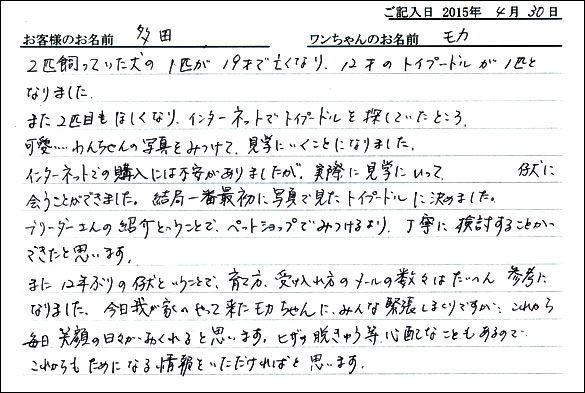 ご記入日 2015年 4月 30日
お客様のお名前 多田 ワンちゃんのお名前 モカ
2匹飼っていた犬の1匹が19才で亡くなり、12才のトイプードルが1匹と
なりました。
また2匹目もほしくなり、インターネットでトイプードルを探していたところ、
可愛いわんちゃんの写真をみつけて、見学にいくことになりました。
インターネットでの購入には不安がありましたが、実際に見学にいって、 仔犬に
会うことができました。結局一番最初に写真で見たトイプードルに決めました。
ブリーダーさんの紹介ということで、ペットショップでみつけるより、丁寧に検討することが
できたと思います。
また12年ぶりの仔犬ということで、育て方、受け入れ方のメールの数々はたいへん参考に
なりました。今日我が家へやって来たモカちゃんに、みんな緊張しまくりですが、これから
毎日笑顔の日々がおくれると思います。ヒザの脱きゅう等、心配なこともあるので
これからもためになる情報をいただければと思います。